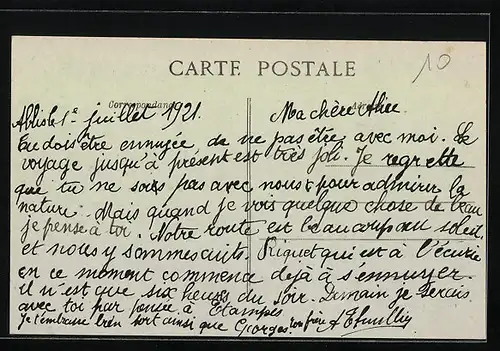 10
CARTE POSTALE
Correspondance
Ablis le 1er juillet 1921. Ma chère Alice
Tu dois être ennuyée de ne pas être avec moi. Le
voyage jusqu'à présent est très joli. Je regrette
que tu ne sois pas avec nous pour admirer la
nature. Mais quand je vois quelque chose de beau
je pense à toi. Notre route est beaucoup au soleil
et nous y sommes cuits. Riquet qui est à l'écurie
en ce moment commence déjà à s'ennuyer.
Il n'est que six heures du soir. Demain je serais
avec toi par pensée à Etampes
Je t'embrasse bien fort ainsi que Georges, ton frère